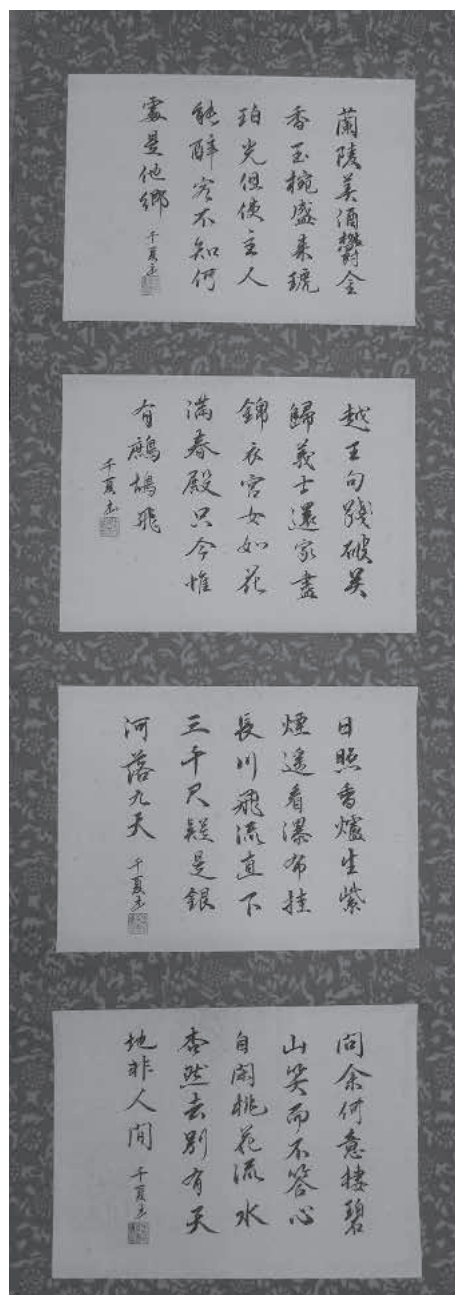 蘭陵美酒鬱金
香玉椀盛来琥
珀光但使主人
能醉客不知何
處是他郷 千夏書
越王句践破吴
歸義士還家盡
錦衣宮女如花
滿春殿只今惟
有鷓鴣飛
千夏書
日照香爐生紫
煙遥看瀑布挂
長川飛流直下
三千尺疑是銀
河落九天 千夏書
問余何意棲碧
山笑而不答心
自閑桃花流水
杳然去別有天
地非人間 千夏書